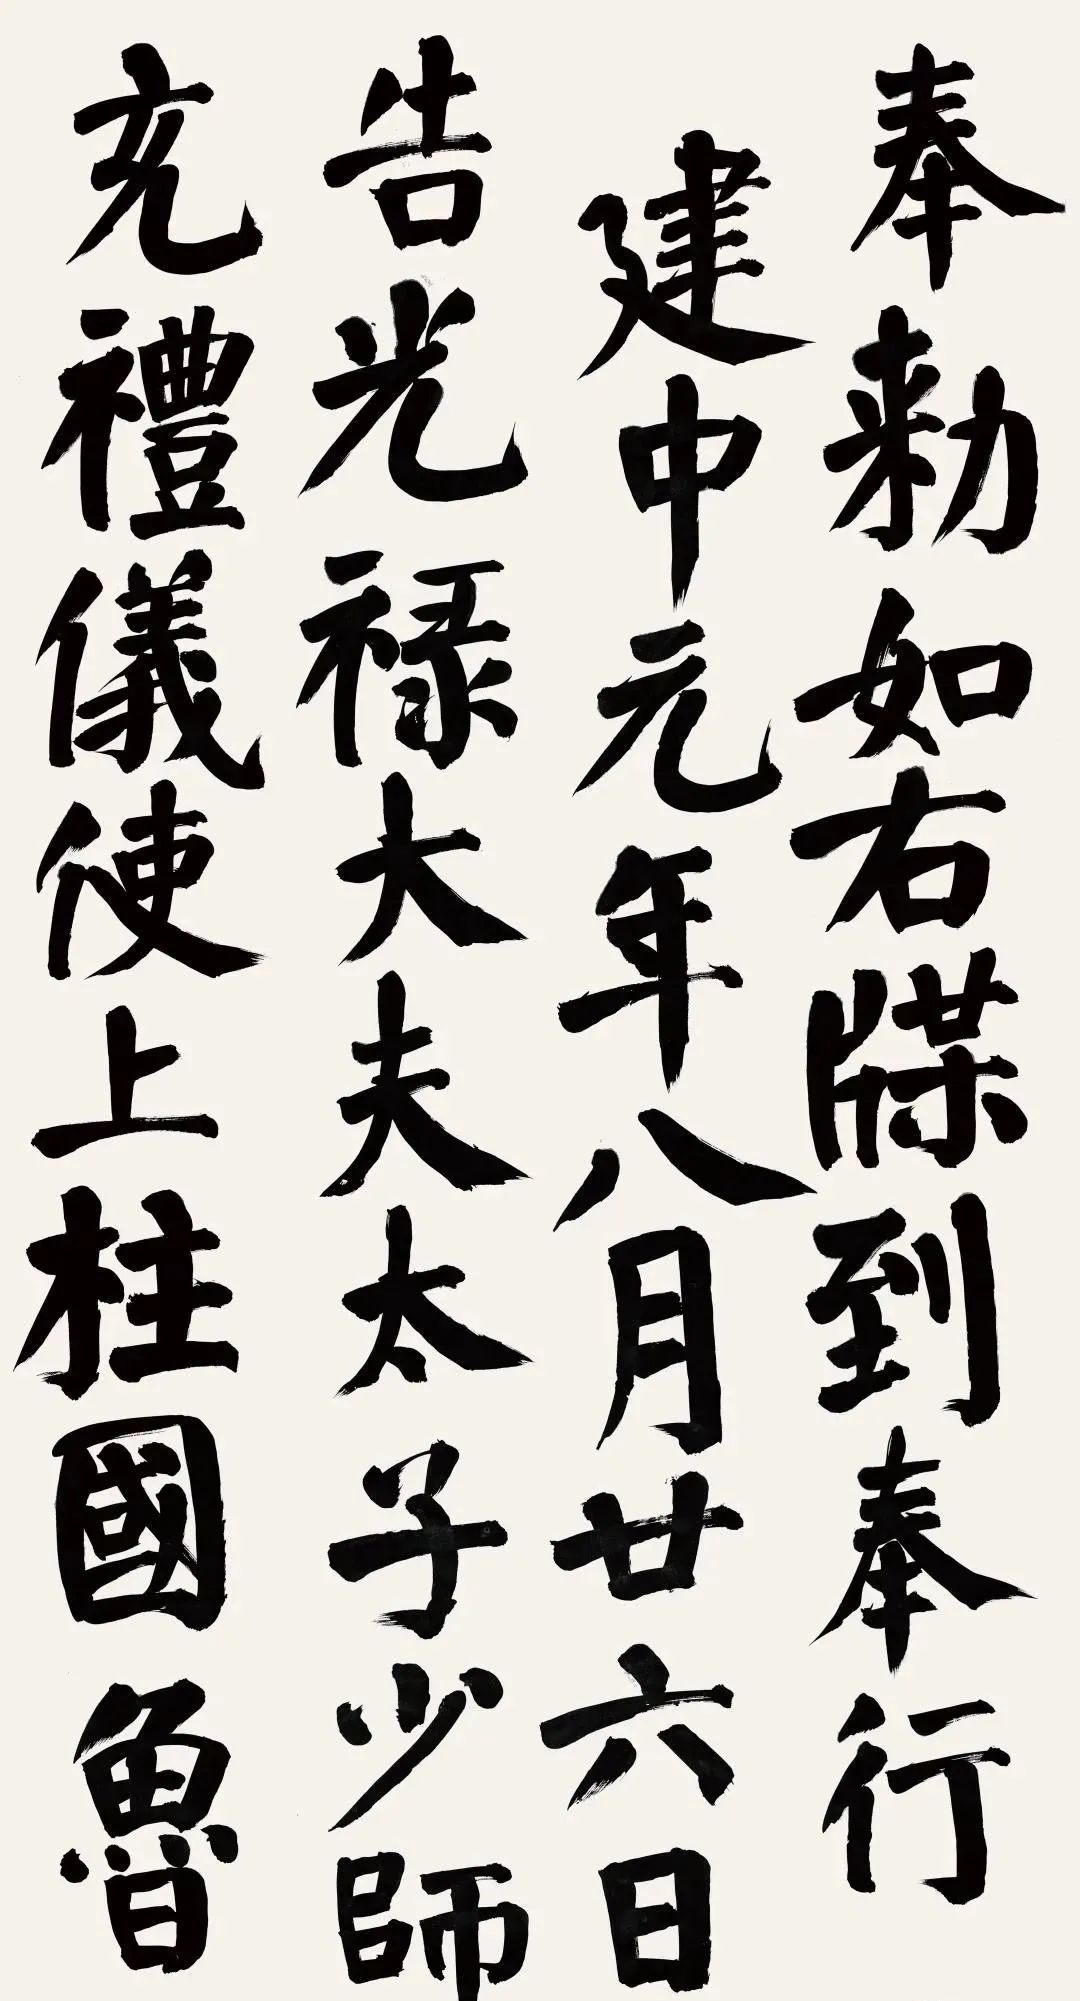 奉勅如右牒到奉行
建中元年八月廿六日
告光禄大夫太子少師
充禮儀使上柱國魯